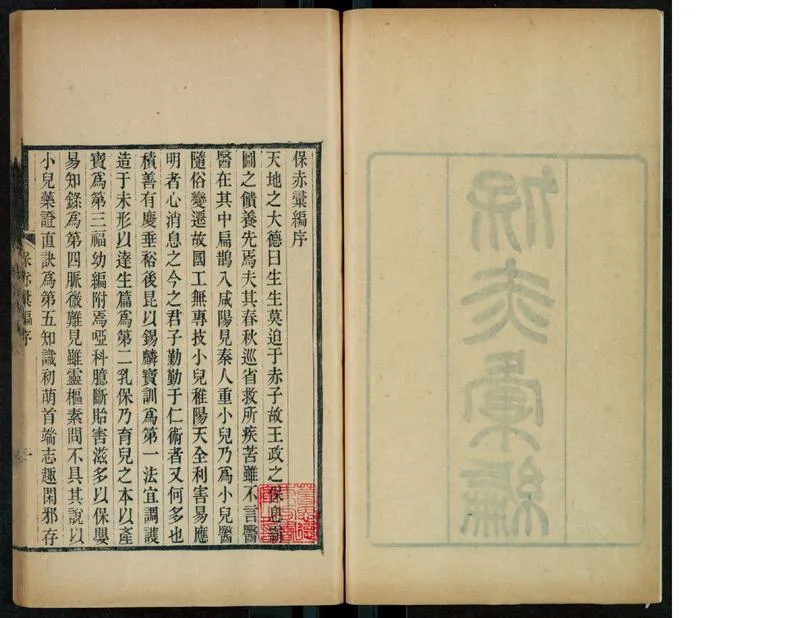 保赤彙編
保赤彙編序
天地之大德曰生生莫迫于赤子故王政之保息霸
圖之饋養先焉夫其春秋巡省救所疾苦雖不言醫
醫在其中扁鵲入咸陽見秦人重小兒乃爲小兒醫
隨俗變遷故國工無專技小兒稚陽天全利害易應
明者心消息之今之君子勤勤于仁術者又何多也
積善有慶垂裕後昆以錫麟寶訓爲第一法宜調護
造于未形以達生篇爲第二乳保乃育兒之本以產
寶爲第三福幼編附焉啞科臆斷貽害滋多以保嬰
易知錄爲第四脈微難見雖靈樞素問不具其說以
小兒藥證直訣爲第五知識初萌首端志趣閑邪存
保赤彙編序